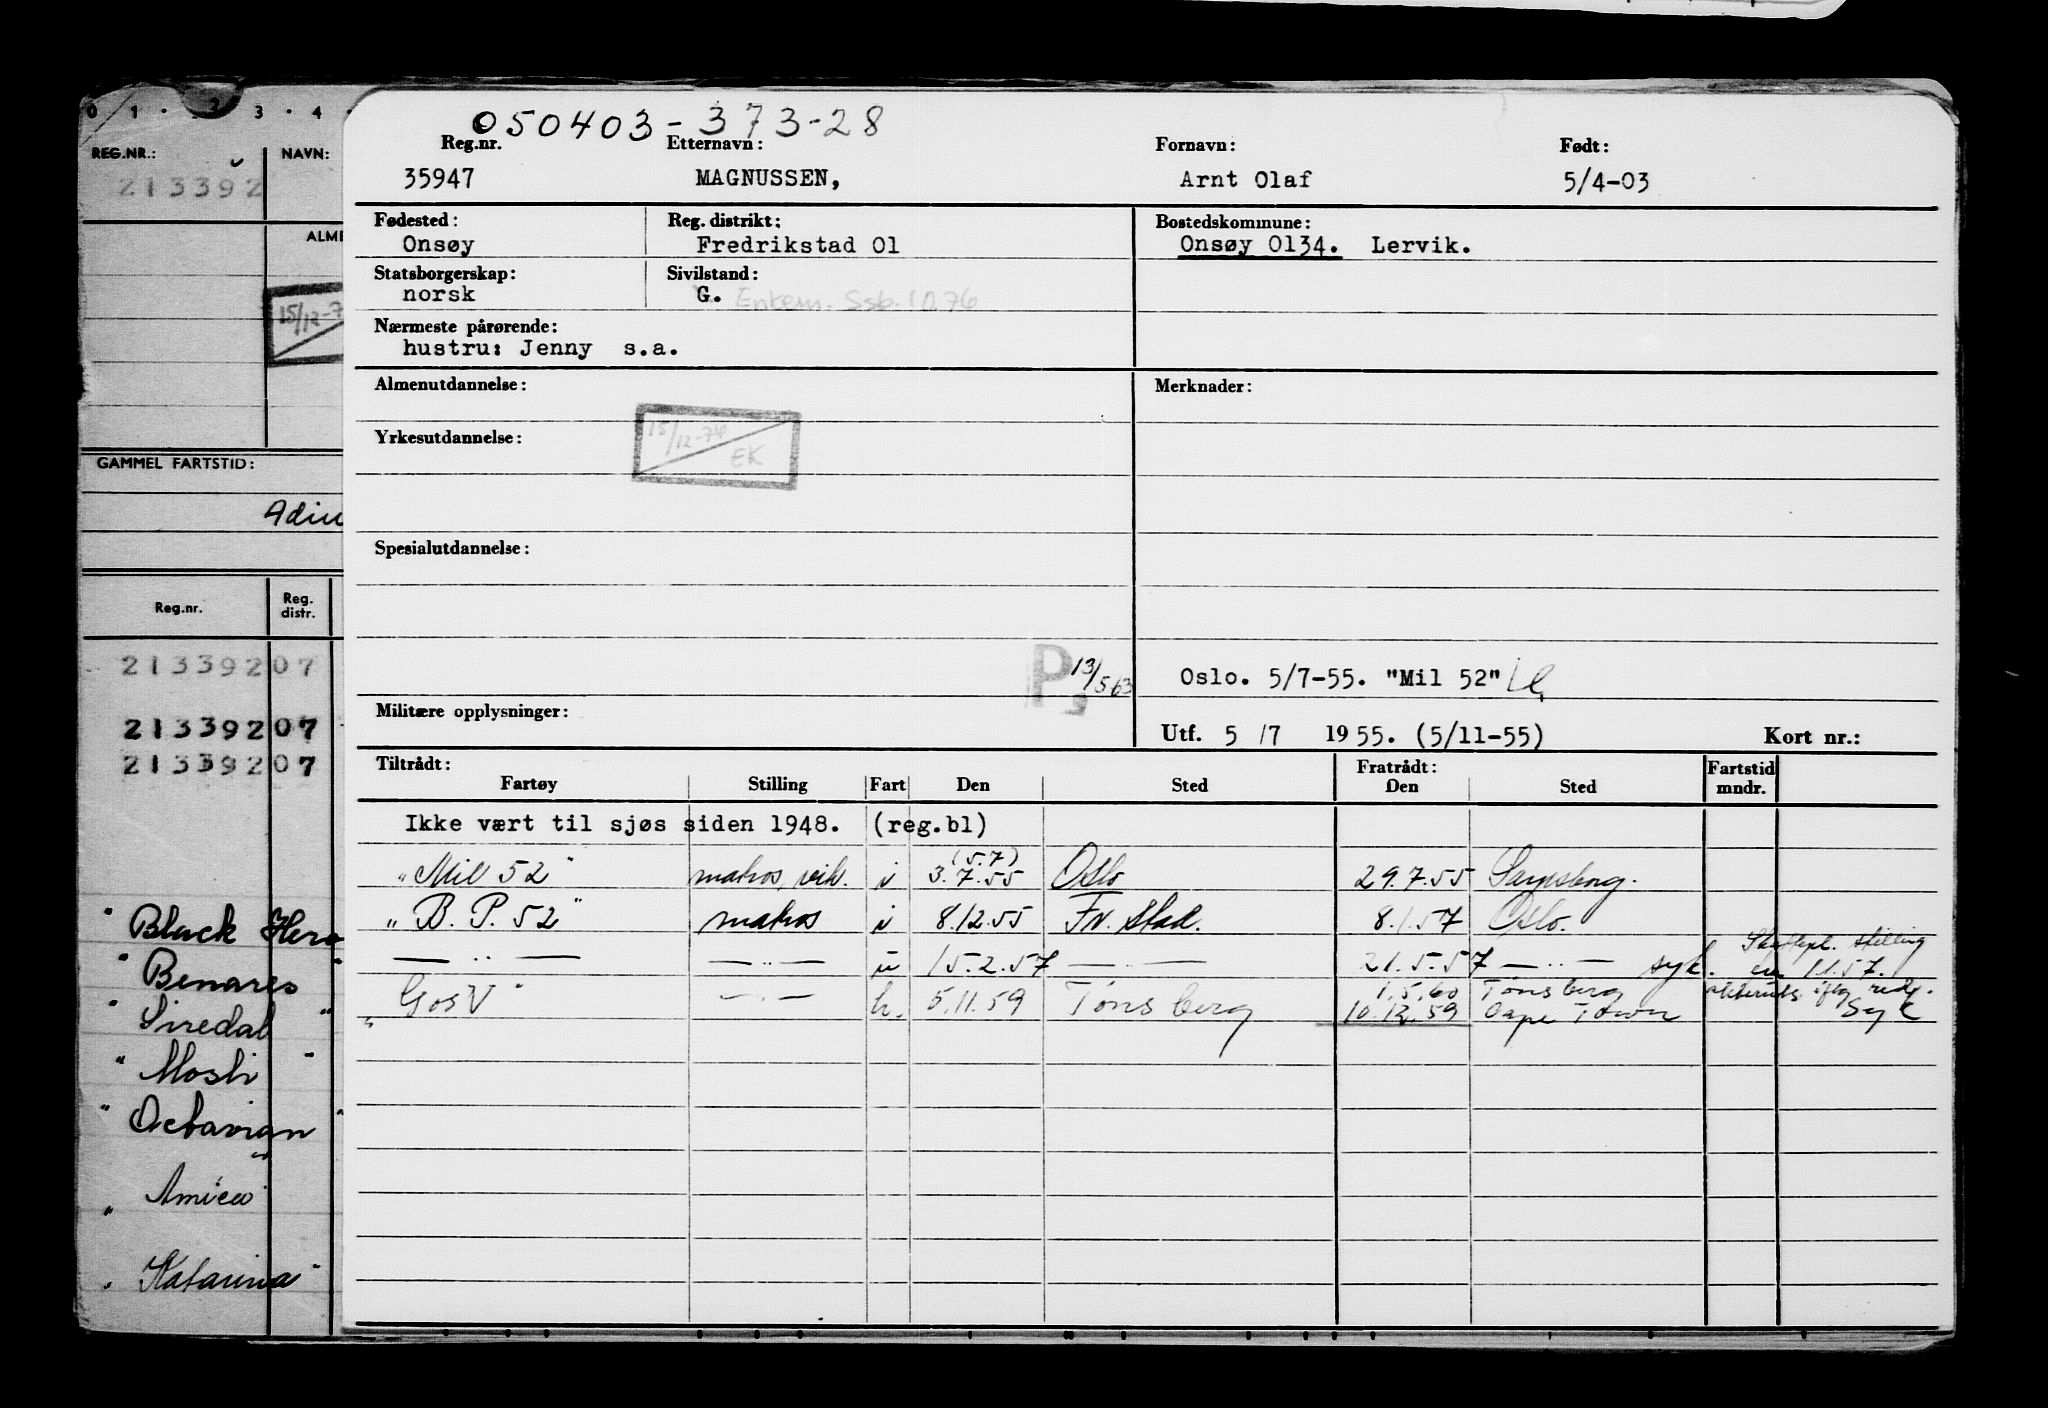 0 1 · 2 3 · 4 ·
REG.NR.:
NAVN:
213392
ALME
15/12-7
GAMMEL FARTSTID:
Reg.nr.
Reg. distr.
21339207
21339207
21339207
"Black Hero
"Benares"
"Siredal"
"Moshi"
"Octavian"
"Amica"
"Katarina"
050403-373-28
Reg.nr. Etternavn: Fornavn: Født:
35947 MAGNUSSEN, Arnt Olaf 5/4-03
Fødested: Reg. distrikt: Bostedskommune:
Onsøy Fredrikstad 01 Onsøy 0134. Lervik.
Statsborgerskap: Sivilstand:
norsk G. Enkem. Ssb. 10.76
Nærmeste pårørende:
hustru: Jenny s.a.
Almenutdannelse: Merknader:
Yrkesutdannelse:
15/12-74
EK
Spesialutdannelse:
P 13/5 63
Oslo. 5/7-55. "Mil 52"
Militære opplysninger:
Utf. 5 /7 1955. (5/11-55) Kort nr.:
Tiltrådt: Fratrådt: Fartstid
Fartøy Stilling Fart Den Sted Den Sted mndr.
Ikke vært til sjøs siden 1948. (reg.bl)
(5.7)
"Mil 52" matros, vik. i 3.7.55 Oslo 29.7.55 Sarpsborg.
"B. P. 52" matros i 8.12.55 Fr. stad. 8.1.57 Oslo.
— .. — — .. — u 15.2.57 — .. — 21.5.57 — .. — syk. stilling 1.1.57.
1.5.60 Tønsberg
"Gos V" — .. — h. 5.11.59 Tønsberg 10.12.59 Cape Town Syk